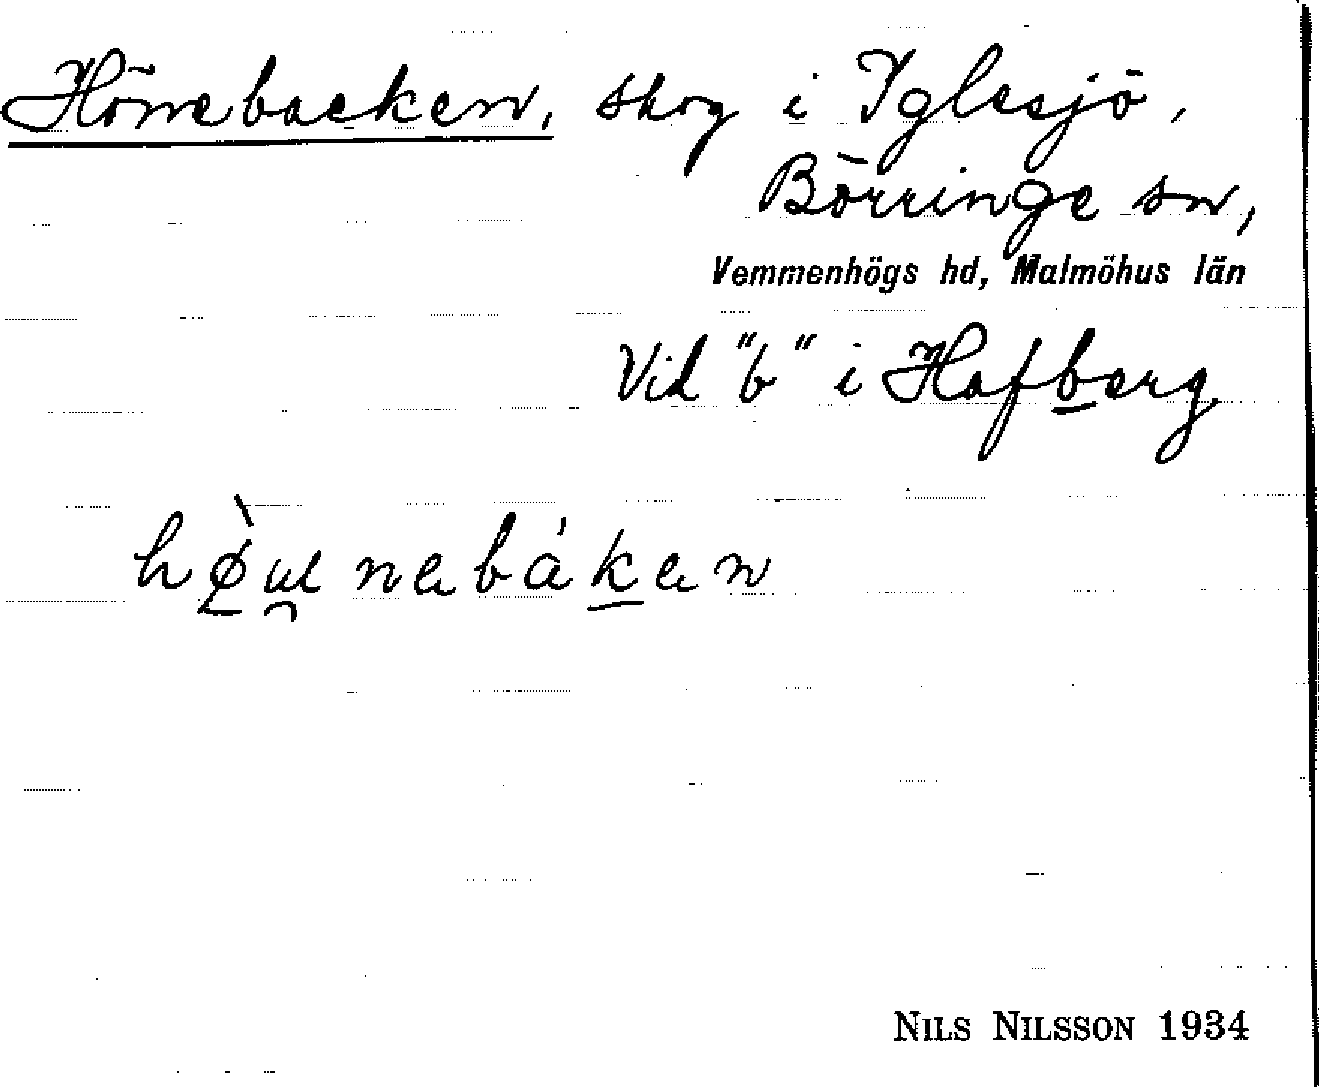 Hönebacken, skog i Yglesjö,
Börringe sn,
Vemmenhögs hd, Malmöhus län
Vid "b" i Hafberg
NILS NILSSON 1934